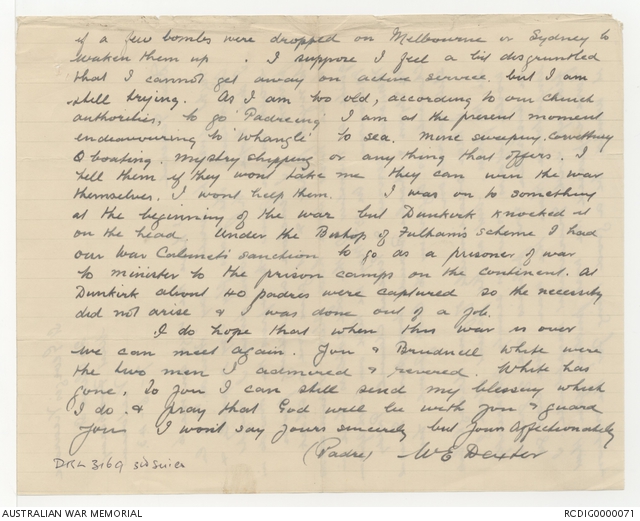 if a few bombs were dropped on Melbourne or Sydney to
waken them up. I suppose I feel a bit disgruntled
that I cannot get away on active service, but I am
still trying. As I am too old, according to our church
authorities, to go 'Padreing' I am at the present moment
endeavouring to 'whangle' to sea. Mine sweeping, Corvetting
Q boating, mystery shipping or anything that offers. I
tell them if they wont take me they can win the war
themselves. I wont help them. I was on to something
at the beginning of the war but Dunkirk knocked it
on the head. Under the Bishop of Fulham's scheme I had
our War Cabinets sanction to go as a prisoner of war
to minister to the prison camps on the continent. At
Dunkirk about 40 padres were captured so the necessity
did not arise & I was done out of a job.
I do hope that when this war is over
we can meet again. You & Brudnell White were
the two men I admired & revered. White has
gone. To you I can still send my blessing which
I do. & pray that God will be with you & guard
you I won't say yours sincerely but yours affectionately
(Padre) W E Dexter
DRL 3169 3rd series
AUSTRALIAN WAR MEMORIAL
RCDIG0000071